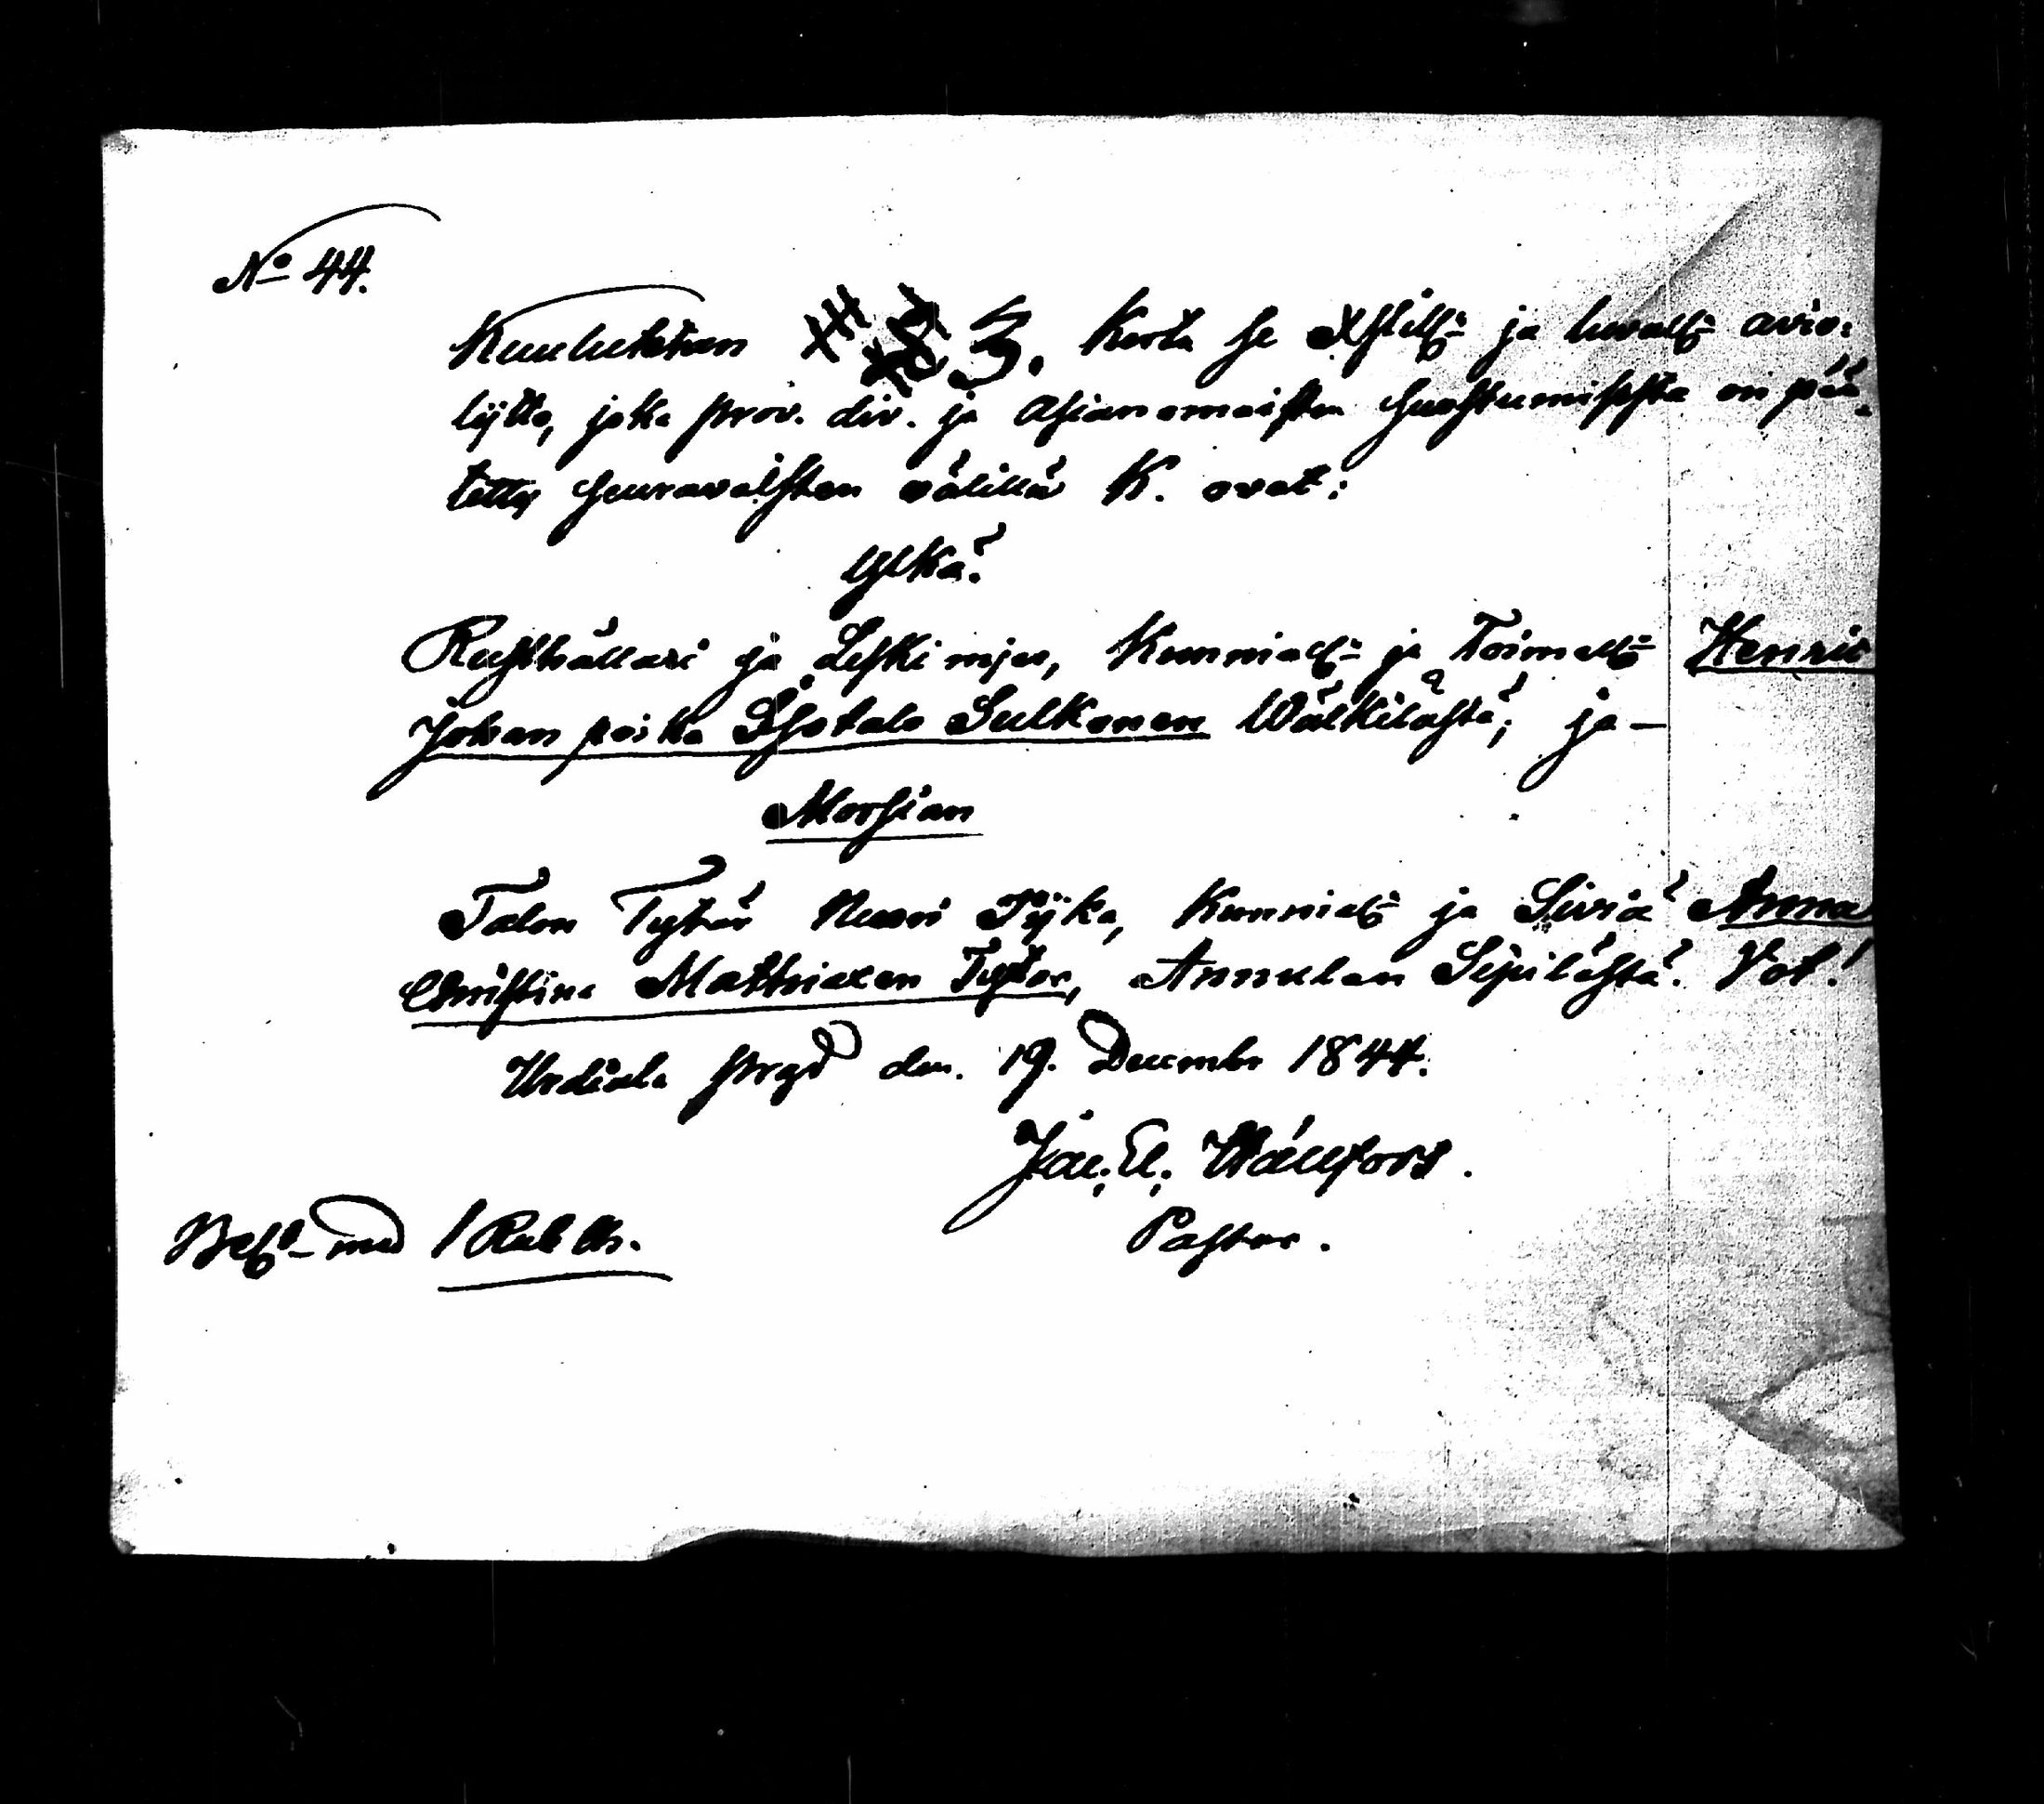 No 44.
Kuulutetan 3. Kerta se Xstill: ja luvall: avio:
lijtto, joka prov. div. ja Asianomaisten suostumisesta on pää:
tetty seuravaisten välillä K. ovat:
Ylkä:
Rusthållari ja Leskimjes, Kunniall: ja Toimell: Henric
Johan poika Isotalo Sulkonen Wälkilästä, ja —
Morsian
Talon Tytär Neuvi Pijka, Kunniall: ja Siviä Anna
Christina Matthiaxen Tytär, Annulan Sipilästä. Vot!
Urdiala prgd den. 19. Decembr 1844.
Jac. El. Wallfors.
Pastor.
med 1 Rub